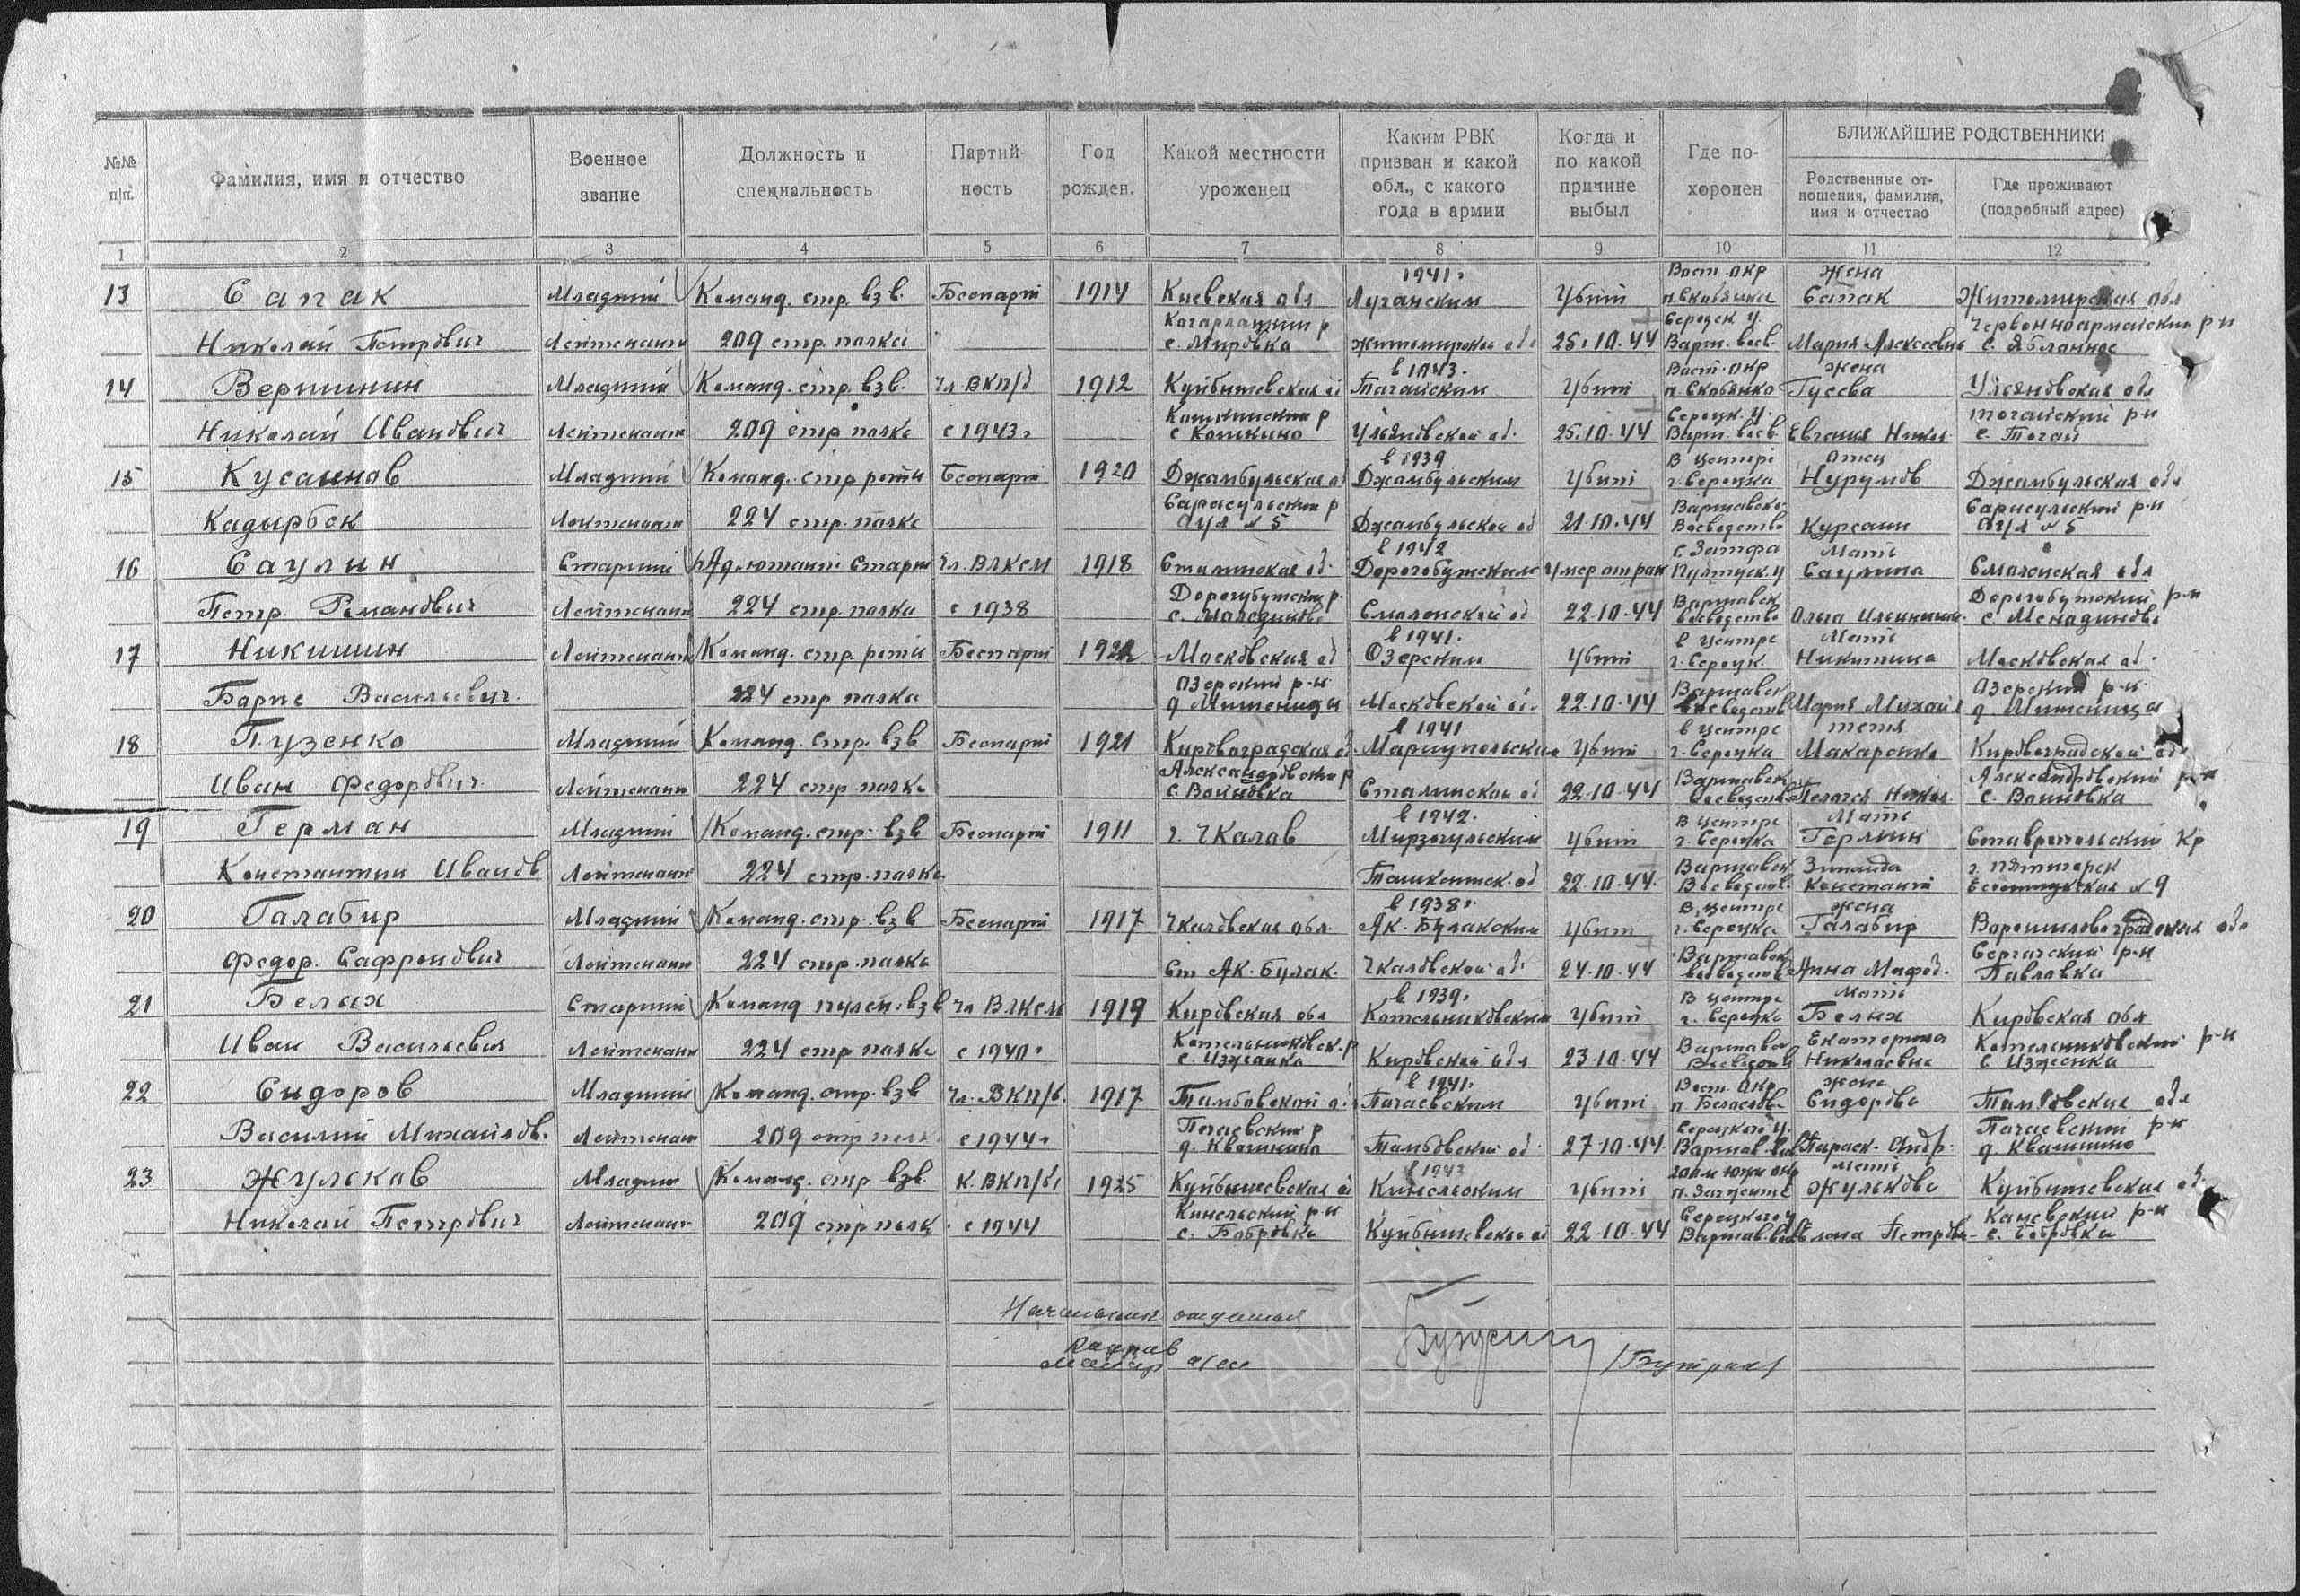 №№ п|п.
Фамилия, имя и отчество
Военное звание
Должность и специальность
Партийность
Год рожден.
Какой местности уроженец
Каким РВК призван и какой обл., с какого года в армии
Когда и по какой причине выбыл
Где похоронен
БЛИЖАЙШИЕ РОДСТВЕННИКИ
Родственные отношения, фамилия, имя и отчество
Где проживают (подробный адрес)
1 2 3 4 5 6 7 8 9 10 11 12
1941г Вост. окр Жена
13 Сапак Младший Команд. стр. взв. Беспарт 1914 Киевская обл Луганским Убит п. Сапак Житомирская обл
р Сероцк у. Червонноармейский р-н
Николай Петрович Лейтенант 209 стр. полка с. Мировка Житомирской об 25.10.44 Варш. воев. Мария Алексеевна с. Яблонное
в 1943. Вост. окр жена
14 Вершинин Младший Команд. стр. взв. Чл. ВКП/б 1912 Куйбышевская об Тагайским Убит п. Гусева Ульяновская обл
Кошкинский р Сероцк. у. Тагайский р-н
Николай Иванович Лейтенант 209 стр полка с 1943г с Кошкино Ульяновской об. 25.10.44 Варш. воев. Евгения Никол. с. Тагай
в 1939 В центре Отец
15 Кусаинов Младший Команд. стр роты Беспарт 1920 Джамбульская об Джамбульским Убит г. Сероцка Нурумов Джамбульская обл
Сарысульский р Варшавско Сарысульский р-н
Кадырбек Лейтенант 224 стр. полка Аул № 5 Джамбульской об 21.10.44 Воеводство Курсаин Аул № 5
в 1942 Мать
16 Саулин Старший Адъютант Старш Чл. ВЛКСМ 1918 Смоленская об. Дорогобужским Умер от ран Пултуск. у Саулина Смоленская обл
Дорогобужский р. Варшавск Дорогобужский р-н
Петр Романович Лейтенант 224 стр. полка с 1938 Смоленской об 22.10.44 воеводство Ольга
в 1941. в центре Мать
17 Никишин Лейтенант Команд. стр. роты Беспарт Московская об Озерским Убит г. Сероцк. Никишина Московская об.
Озерский р-н Варшавск Озерский р-н
Борис Васильевич 224 стр полка д. Московской об. 22.10.44 воеводств Мария Михайл д.
в 1941 в центре тетя
18 Пузенко Младший Команд. стр. взв Беспарт 1921 Кировоградская об. Мариупольским Убит г. Сероцка Макаренко Кировоградской об
Александровский р Варшавск Александровский р-н
Иван Федорович Лейтенант 224 стр полка с. Войновка Сталинской об 22.10.44 воеводство Пелагея Никол. с. Войновка
в 1942. в центре Мать
19 Герман Младший Команд. стр. взв Беспарт 1911 г. Чкалов Мирзачульским Убит г. Сероцка Герман Ставропольский Кр
Варшавск Зинаида г. Пятигорск
Константин Иванов Лейтенант 224 стр. полка Ташкентск. об 22.10.44. Воеводств. Констант № 9
в 1938г. В. центре жена
20 Галабир Младший Команд. стр. взв Беспарт 1917 Чкаловская обл. Ак. Булакским Убит г. Сероцка Галабир Ворошиловградская обл
Варшавск р-н
Федор. Сафронович Лейтенант 224 стр. полка Ст Ак. Булак. Чкаловской об. 24.10.44 воеводств Анна Мафод. Павловка
в 1939. В центре Мать
21 Белых Старший Команд пулем. взв Чл ВЛКСМ 1919 Кировская обл Котельниковским Убит г. Сероцка Белых Кировская обл
Котельниковск. р Варшавск Екатерина Котельниковский р-н
Иван Васильевич Лейтенант 224 стр полка с 1940. Кировской обл 23.10.44 Воеводств Николаевна
в 1941. Вост. Окр жена
22 Сидоров Младший Команд. стр. взв Чл. ВКП/б. 1917 Тамбовской о. Пичаевским Убит п. Сидорова Тамбовская обл
Пичаевский р Сероцкого у. Пичаевский р-н
Василий Михайлов. Лейтенант 209 стр полк с 1944. д. Тамбовской об. 27.10.44 Варшав. воев Параск. Андр. д.
Мать
23 Жульков Младший Команд. стр взв. К. ВКП/б 1925 Куйбышевская об Кинельским Убит п. Жулькова Куйбышевская об
Кинельский р-н Сероцкого у р-н
Николай Петрович Лейтенант 209 стр полк с 1944 с. Бобровка Куйбышевской об 22.10.44 Варшав. воев Елена Петровн с. Бобровка
Начальник отделения
майор а/сл /Бутрин/
ПАМЯТЬ
НАРОДА